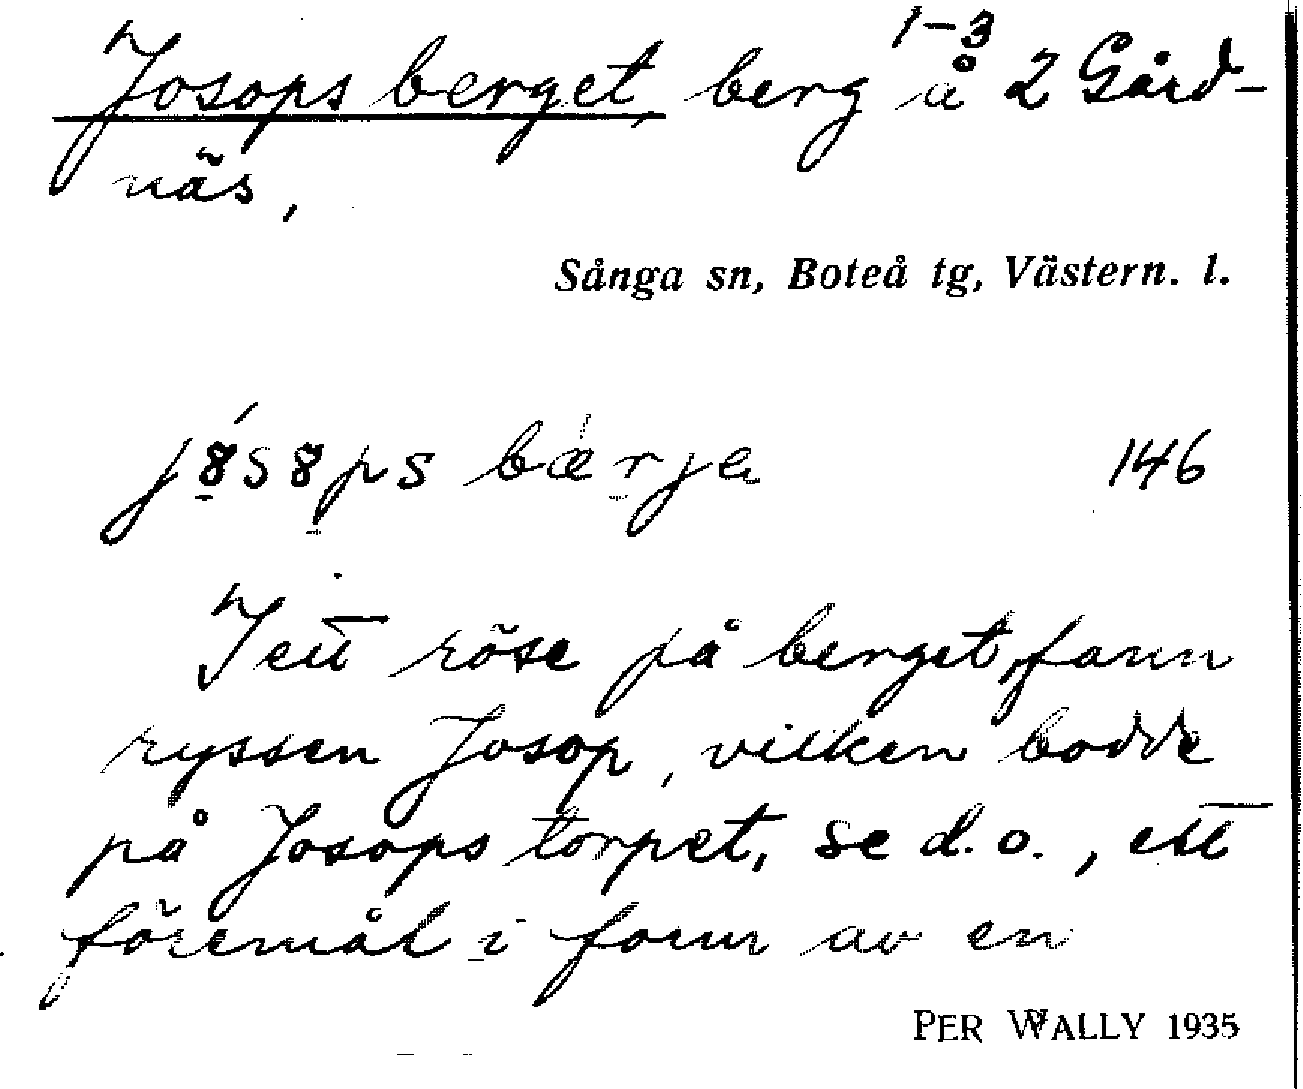 Josopsberget, berg å 2¹⁻³ Gård-
näs,
Sånga sn, Boteå tg, Västern. l.
146
I ett röse på berget, fann
ryssen Josop, vilken bodde
på Josopstorpet, se d. o., ett
föremål i form av en
PER WALLY 1935